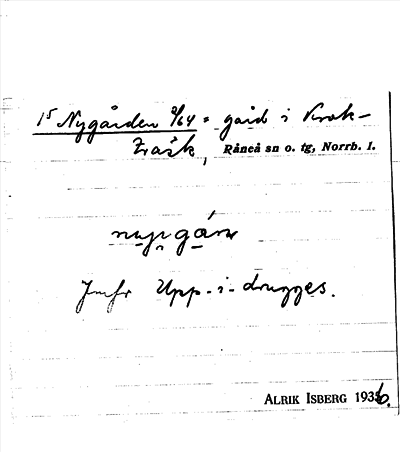 15 Nygården 2/64 = gård i Krok-
träsk, Råneå sn o. tg, Norrb. l.
nyjgán
Jmfr Upp-i-drugges.
ALRIK ISBERG 1936.